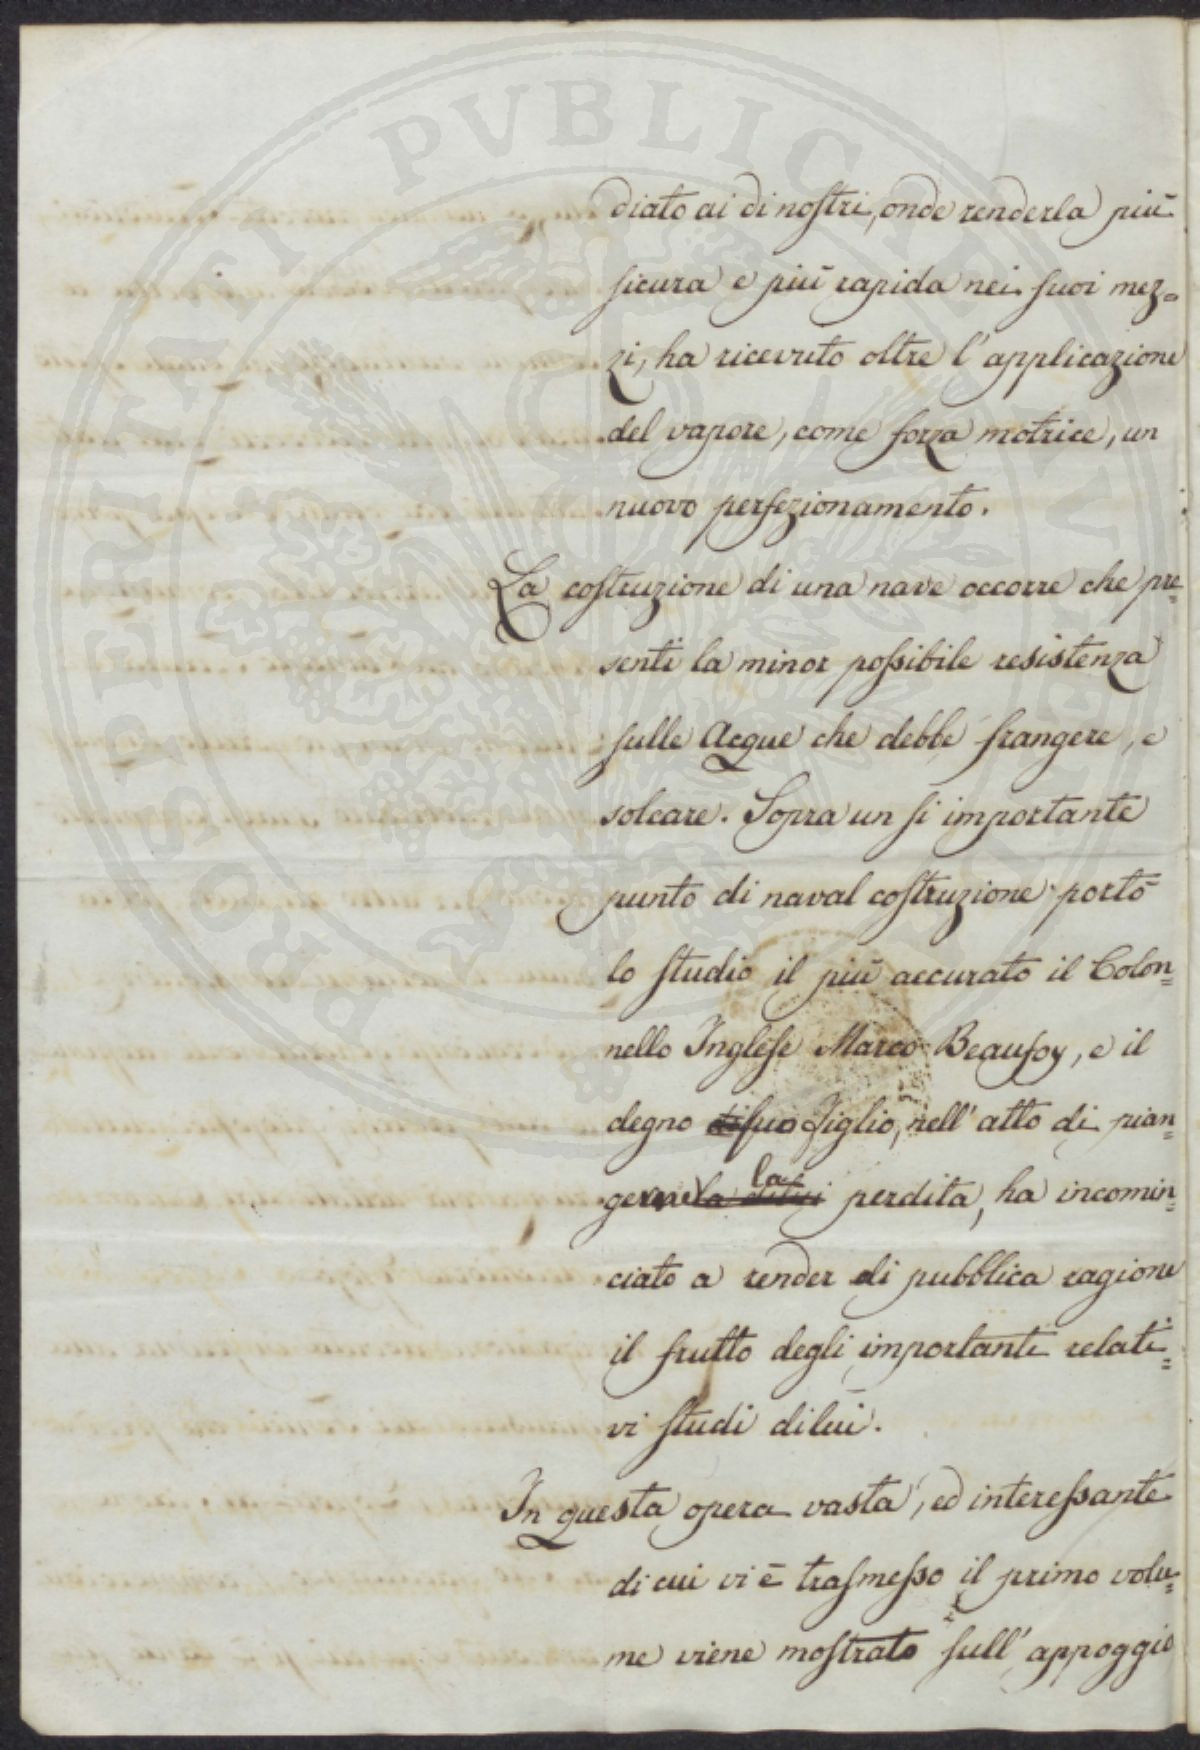 diato ai di nostri, onde renderla più
sicura e più rapida nei suoi mez=
zi, ha ricevuto oltre l'applicazione
del vapore, come forza motrice, un
nuovo perfezionamento.
La costruzione di una nave occorre che pre=
senti la minor possibile resistenza
sulle Acque che debbe frangere, e
solcare. Sopra un si importante
punto di naval costruzione portò
lo studio il più accurato il Colon=
nello Inglese Marco Beaufoy, e il
degno suo Figlio, nell'atto di pian=
gerne la perdita, ha incomin=
ciato a render di pubblica ragione
il frutto degli importanti relati=
vi studi di lui.
In questa opera vasta, ed interessante
di cui vi è trasmesso il primo volu=
me viene mostrato sull'appoggio
PROSPERITATI PVBLICAE